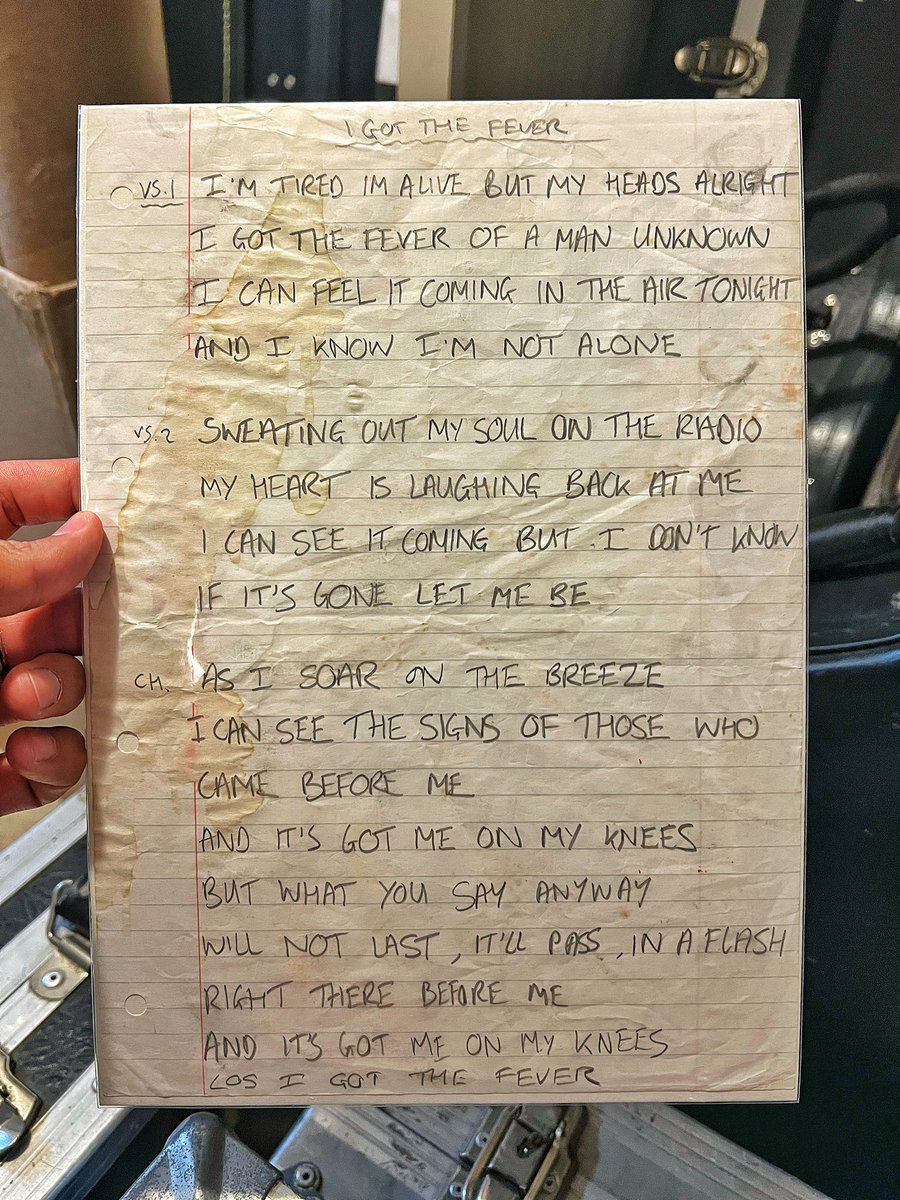 I GOT THE FEVER
VS.1 I'M TIRED IM ALIVE BUT MY HEADS ALRIGHT
I GOT THE FEVER OF A MAN UNKNOWN
I CAN FEEL IT COMING IN THE AIR TONIGHT
AND I KNOW I'M NOT ALONE
VS.2 SWEATING OUT MY SOUL ON THE RADIO
MY HEART IS LAUGHING BACK AT ME
I CAN SEE IT COMING BUT I DON'T KNOW
IF IT'S GONE LET ME BE
CH. AS I SOAR ON THE BREEZE
I CAN SEE THE SIGNS OF THOSE WHO
CAME BEFORE ME
AND IT'S GOT ME ON MY KNEES
BUT WHAT YOU SAY ANYWAY
WILL NOT LAST, IT'LL PASS, IN A FLASH
RIGHT THERE BEFORE ME
AND IT'S GOT ME ON MY KNEES
COS I GOT THE FEVER